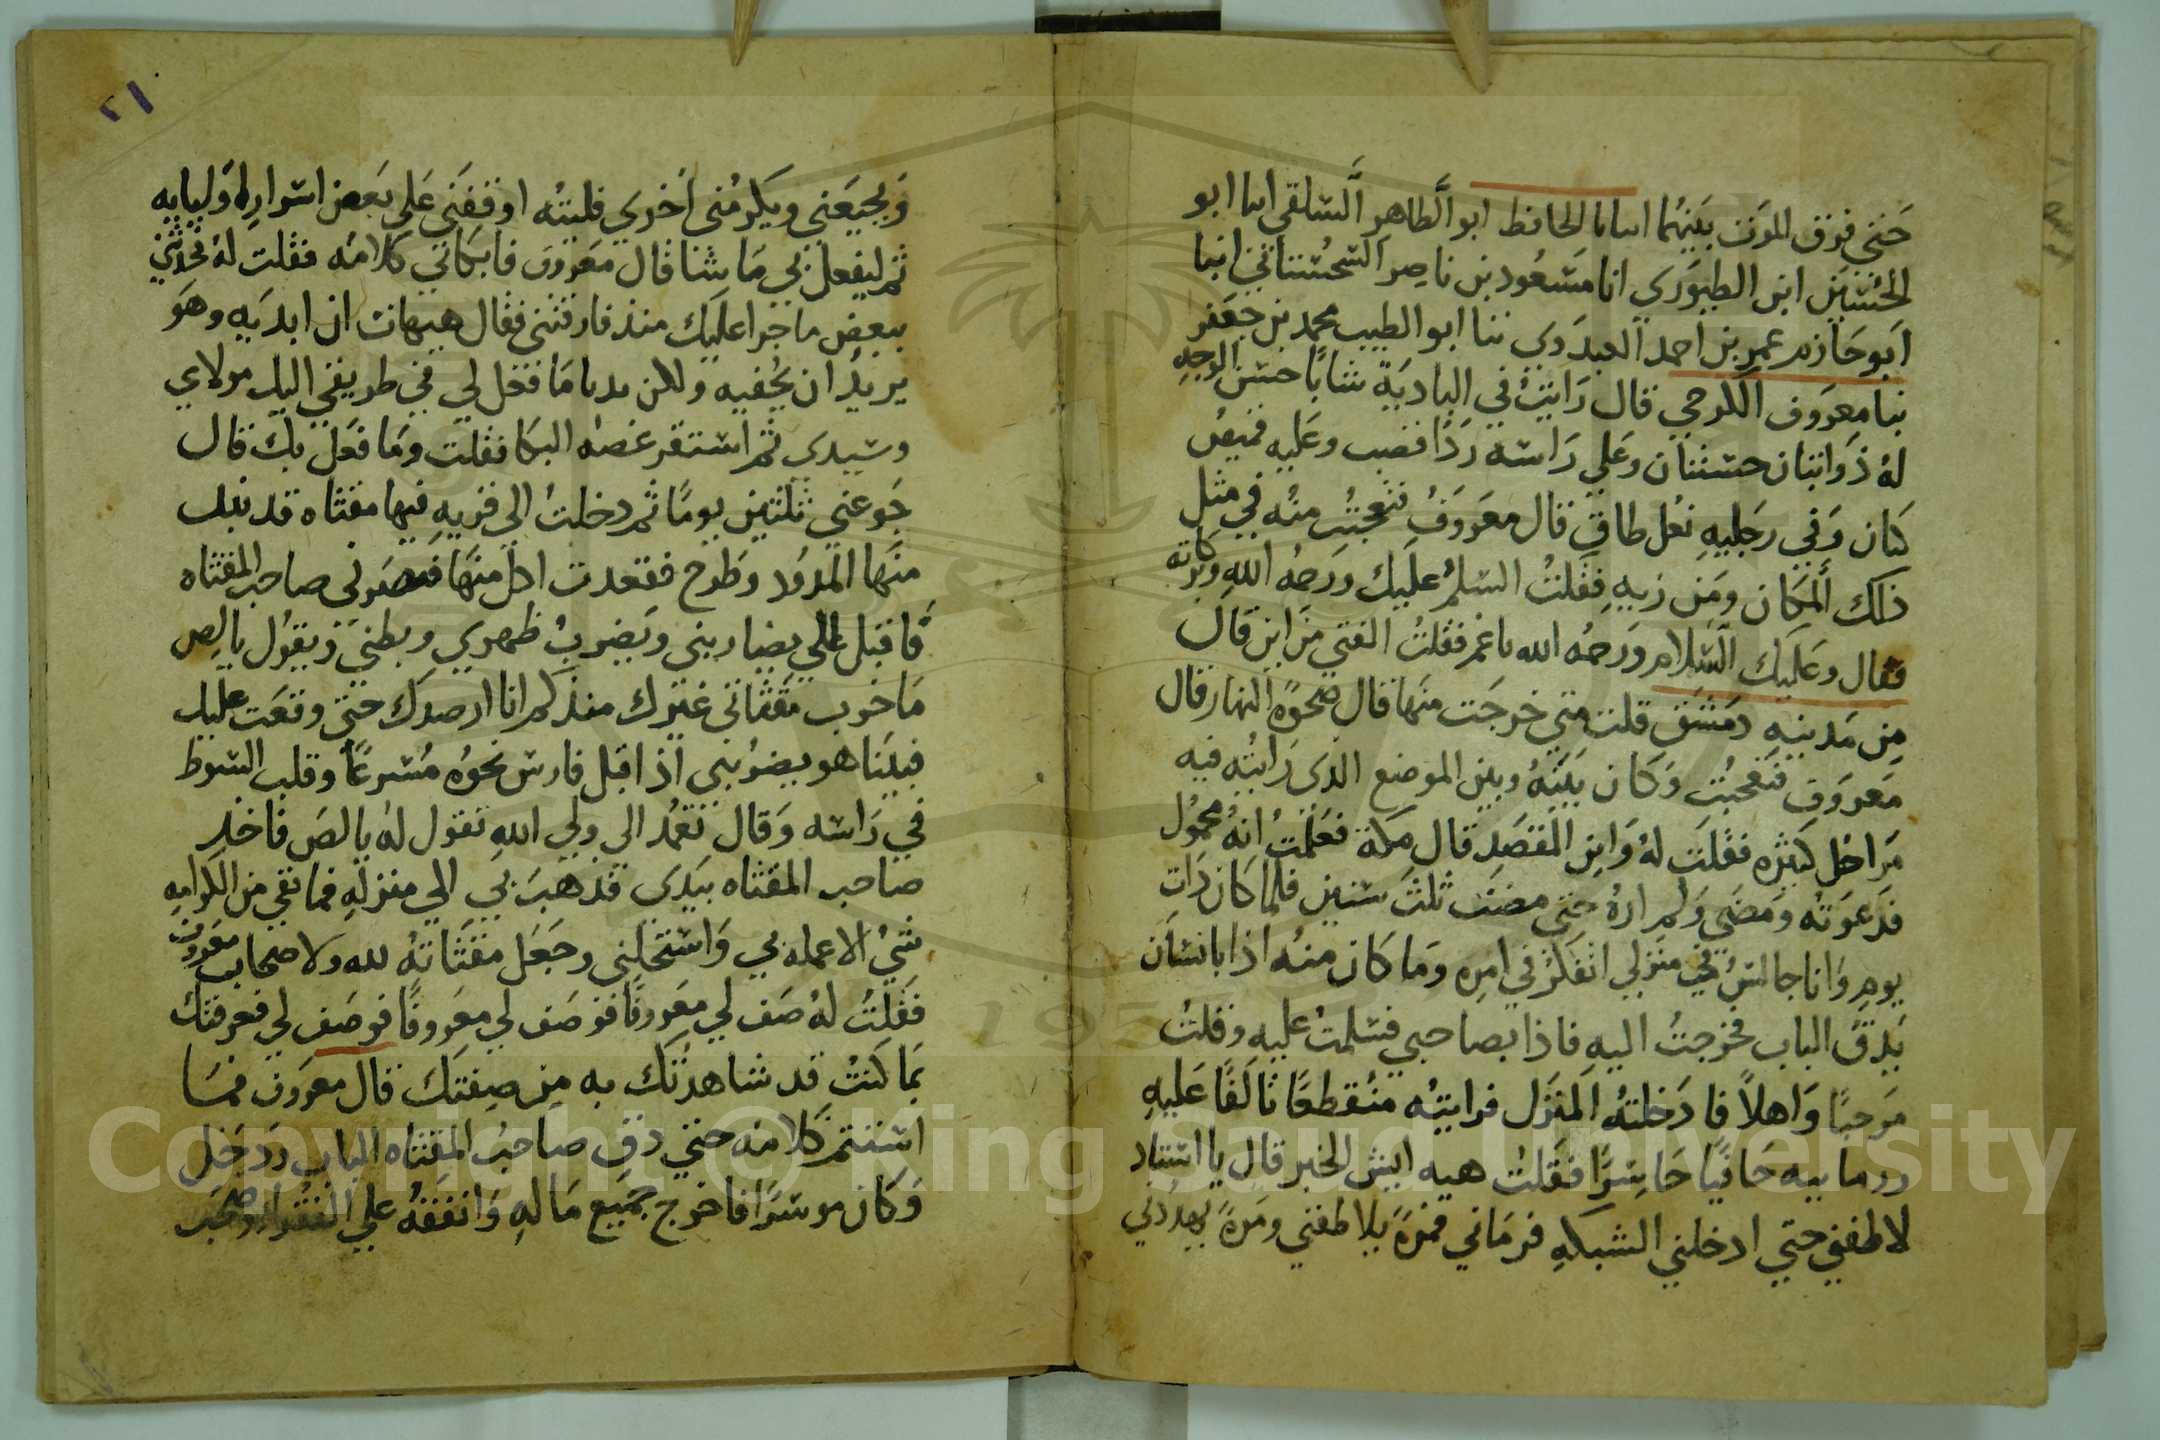 حتي فرق الموت بينهما انبانا الحافظ ابو الطاهر السلفي انبا ابو
الحسين ابن الطيوري انا مسعود بن ناصر السجستاني انبا
ابو حازم عمر بن احمد العبدوي ثنا ابو الطيب محمد بن جعفر
نبا معروف الكرخي قال رايت في البادية شابا حسن الوجه
له ذوابتان حسنتان وعلي راسه ردا قصب وعليه قميص
كتان وفي رجليه نعل طاق قال معروف فتعجبت منه في مثل
ذلك المكان ومن زيه فقلت السلم عليك ورحمه الله وبركاته
فقال وعليك السلام ورحمه الله يا عم فقلت الفتي من اين قال
من مدينه دمشق قلت متي خرجت منها قال ضحوة النهار قال
معروف فتعجبت وكان بينه وبين الموضع الذي رايته فيه
مراحل كثيره فقلت له واين المقصد قال مكة فعلمت انه محمول
فدعوته ومضي ولم اره حتي مضت ثلث سنين فلما كان ذات
يوم وانا جالس في منزلي اتفكر في امره وما كان منه اذا بانسان
يدق الباب فخرجت اليه فاذا بصاحبي فسلمت عليه وقلت
مرحبا واهلا فادخلته المنزل فرايته منقطعا تالفا عليه
زرمانيه حافيا حاسرا فقلت هيه ايش الخبر قال يا استاد
لاطفني حتي ادخلني الشبكه فرماني فمرة يلاطفني ومرة يهددني
٢١
ويجيعني ويكرمني اخري فليته اوقفني علي بعض اسرار اوليايه
ثم ليفعل بي ما شا قال معروف فابكاني كلامه فقلت له تحدثني
ببعض ما جرا عليك منذ فارقتني فقال هيهات ان ابديه وهو
يريد ان يخفيه ولكن بديا ما فعل لي في طريقي اليك مولاي
وسيدي ثم استقر غصه البكا فقلت وما فعل بك قال
جوعني ثلثين يوما ثم دخلت الي قريه فيها مقثاه قد نبذ
منها المدود وطرح فقعدت اكل منها فبصرني صاحب المقثاه
فاقبل علي يضاربني ويضرب ظهري وبطني ويقول يا لص
ما خرب مقثاتي غيرك منذ كم انا ارصدك حتي وقعت عليك
فبينا هو يضربني اذ اقبل فارس نحوه مسرعا وقلب السوط
في راسه وقال تعمد الي ولي الله تقول له يا لص فاخذ
صاحب المقثاه بيدي فذهب بي الي منزله فما بقي من الكرامه
شي الا عمله بي واستحلني وجعل مقثاته لله ولاصحاب معروف
فقلت له صف لي معروفا فوصف لي معروفا فوصف لي فعرفتك
بما كنت قد شاهدتك به من صفتك قال معروف فما
استتم كلامه حتي دق صاحب المقثاه الباب ودخل
وكان موسرا فاخرج جميع ماله وانفقه علي الفقرا وصحب